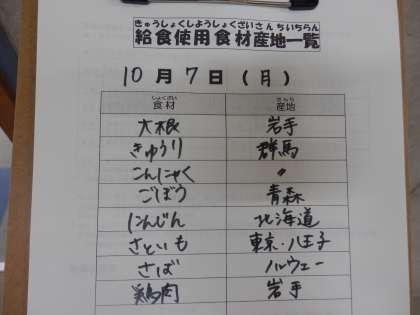 きゅうしょくしようしょくざいさんちいちらん
給食使用食材産地一覧
10月7日(月)
しょくざい さんち
食材 産地
大根 岩手
きゅうり 群馬
こんにゃく 〃
ごぼう 青森
にんじん 北海道
さといも 東京・八王子
さば ノルウェー
鶏肉 岩手